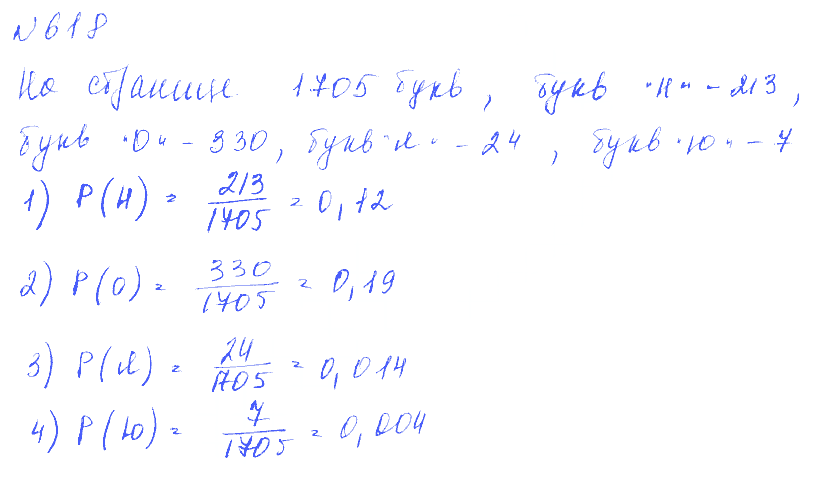 №618
На странице 1705 букв, букв "Н" - 213,
букв "О" - 330, букв "Я" - 24, букв "Ю" - 7
1) P(Н) = 213/1705 = 0,12
2) P(О) = 330/1705 = 0,19
3) P(Я) = 24/1705 = 0,014
4) P(Ю) = 7/1705 = 0,004